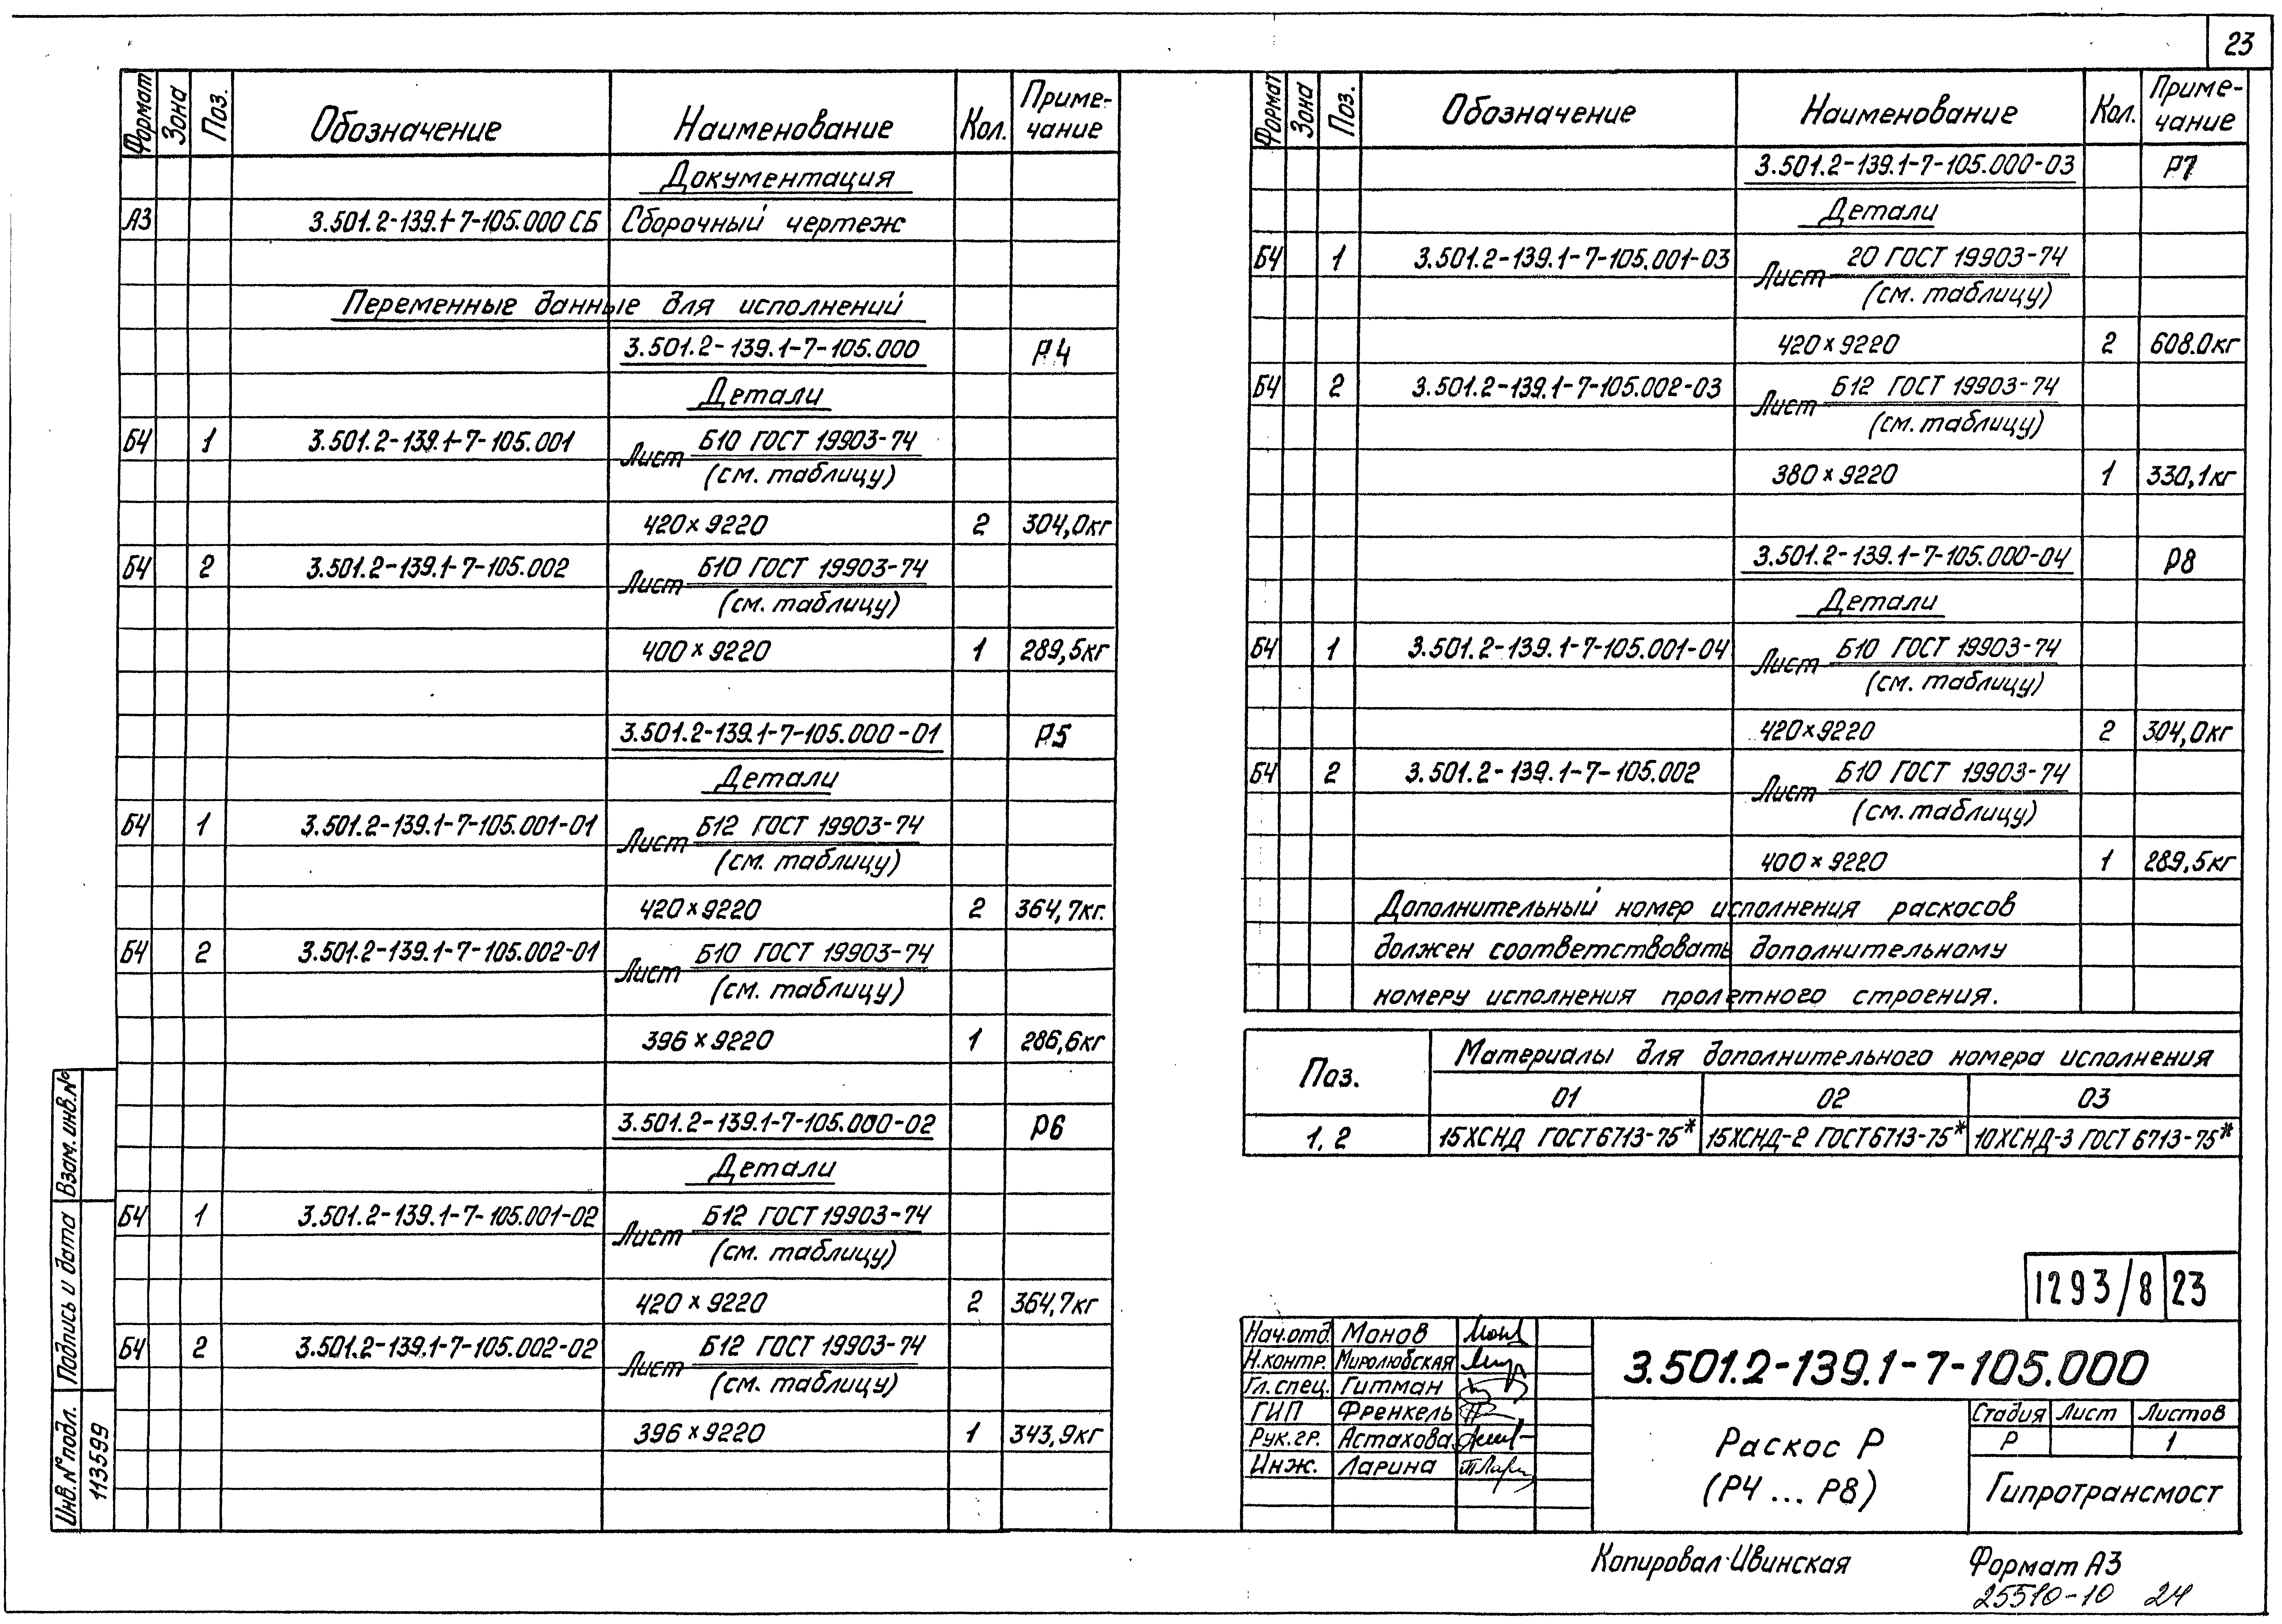 23
Формат Зона Поз. Обозначение Наименование Кол. Приме-
чание
Документация
А3 3.501.2-139.1-7-105.000 СБ Сборочный чертеж
Переменные данные для исполнений
3.501.2-139.1-7-105.000 Р4
Детали
Б4 1 3.501.2-139.1-7-105.001 Лист Б10 ГОСТ 19903-74
(см. таблицу)
420×9220 2 304,0кг
Б4 2 3.501.2-139.1-7-105.002 Лист Б10 ГОСТ 19903-74
(см. таблицу)
400×9220 1 289,5кг
3.501.2-139.1-7-105.000-01 Р5
Детали
Б4 1 3.501.2-139.1-7-105.001-01 Лист Б12 ГОСТ 19903-74
(см. таблицу)
420×9220 2 364,7кг.
Б4 2 3.501.2-139.1-7-105.002-01 Лист Б10 ГОСТ 19903-74
(см. таблицу)
396×9220 1 286,6кг
3.501.2-139.1-7-105.000-02 Р6
Детали
Б4 1 3.501.2-139.1-7-105.001-02 Лист Б12 ГОСТ 19903-74
(см. таблицу)
420×9220 2 364,7кг
Б4 2 3.501.2-139.1-7-105.002-02 Лист Б12 ГОСТ 19903-74
(см. таблицу)
396×9220 1 343,9кг
Формат Зона Поз. Обозначение Наименование Кол. Приме-
чание
3.501.2-139.1-7-105.000-03 Р7
Детали
Б4 1 3.501.2-139.1-7-105.001-03 Лист 20 ГОСТ 19903-74
(см. таблицу)
420×9220 2 608.0кг
Б4 2 3.501.2-139.1-7-105.002-03 Лист Б12 ГОСТ 19903-74
(см. таблицу)
380×9220 1 330,1кг
3.501.2-139.1-7-105.000-04 Р8
Детали
Б4 1 3.501.2-139.1-7-105.001-04 Лист Б10 ГОСТ 19903-74
(см. таблицу)
420×9220 2 304,0кг
Б4 2 3.501.2-139.1-7-105.002 Лист Б10 ГОСТ 19903-74
(см. таблицу)
400×9220 1 289,5кг
Дополнительный номер исполнения раскосов
должен соответствовать дополнительному
номеру исполнения пролетного строения.
Поз. Материалы для дополнительного номера исполнения
01 02 03
1, 2 15ХСНД ГОСТ6713-75* 15ХСНД-2 ГОСТ6713-75* 10ХСНД-3 ГОСТ6713-75*
1293/8 23
Нач.отд. Монов
Н.контр. Миролюбская
Гл.спец. Гитман
ГИП Френкель
Рук.гр. Астахова
Инж. Ларина
3.501.2-139.1-7-105.000
Раскос Р
(Р4 ... Р8)
Стадия Лист Листов
Р 1
Гипротрансмост
Инв.№подл. Подпись и дата Взам.инв.№
113599
Копировал Ивинская Формат А3
25510-10 24